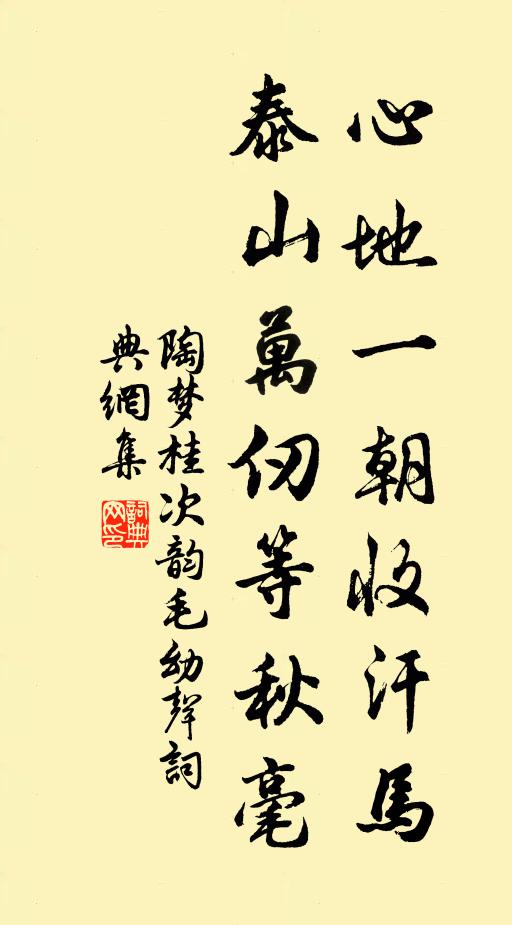 心地一朝收汗馬
泰山萬仞等秋毫
陶梦桂次韵毛幼聲詞
典網集
詞典网印